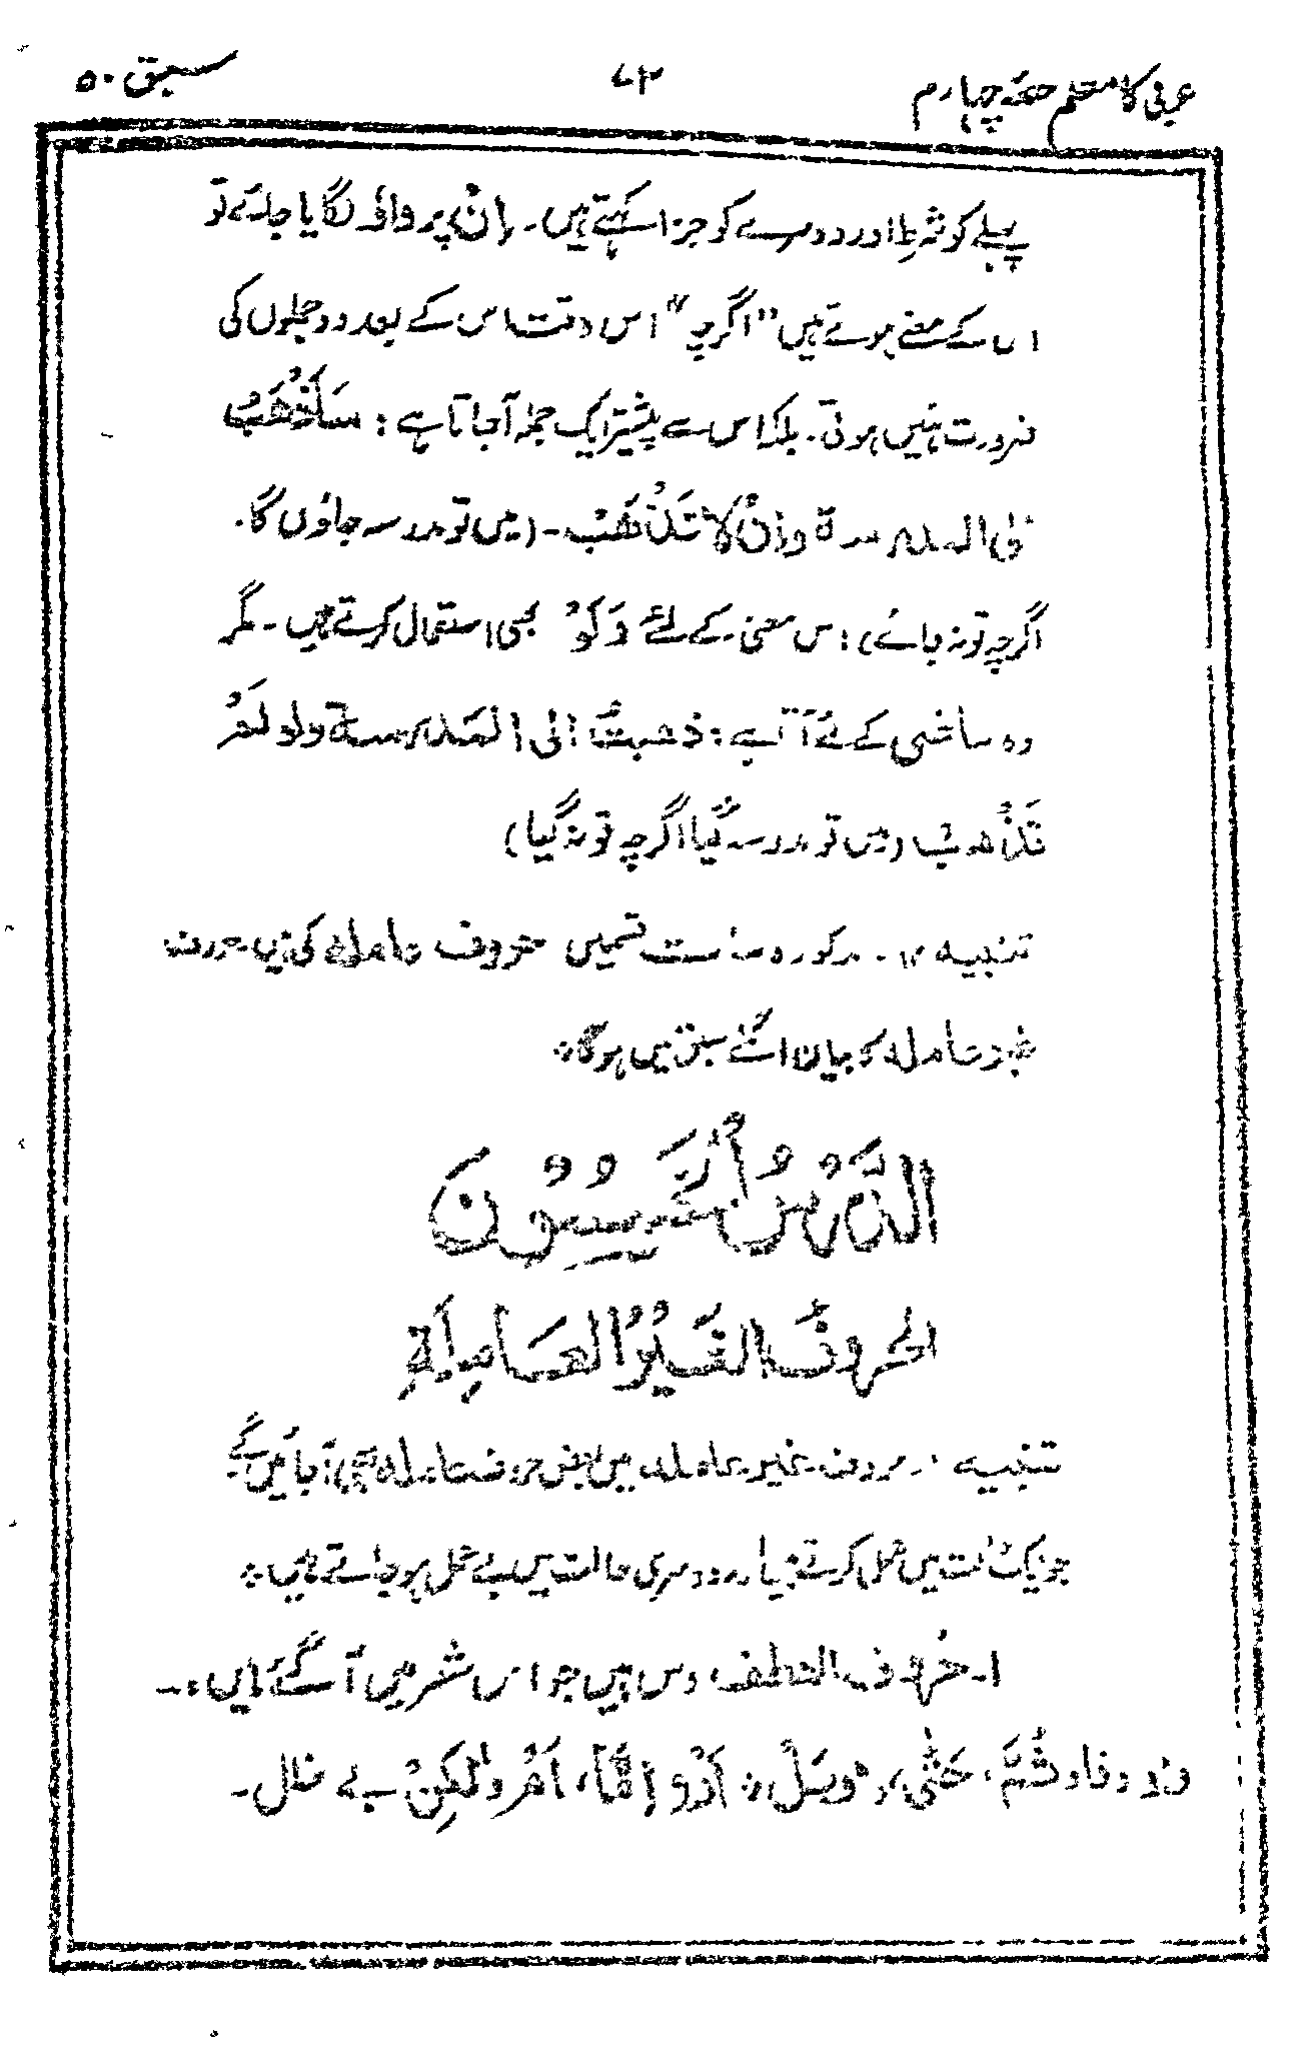 عربی کا معلم حصّہ چہارم ۷۳ سبق ۵۰
پہلے کو شرط اور دوسرے کو جزا کہتے ہیں۔ إنْ پر واؤ لگایا جائے تو
اس کے معنے ہوتے ہیں "اگرچہ" اس وقت اس کے بعد دو جملوں کی
ضرورت نہیں ہوتی۔ بلکہ اس سے پیشتر ایک جملہ آجاتا ہے : سَأَذْهَبُ
إلى المدرسة وإنْ لا تَذْهَبْ ۔ (میں تو مدرسہ جاؤں گا۔
اگرچہ تو نہ جائے) اس معنیٰ کے لئے وَلَوْ بھی استعمال کرتے ہیں ۔ مگر
وہ ماضی کے لئے آتا ہے : ذهبتُ الى المَدرسة ولو لَمْ
تَذْهبْ (میں تو مدرسہ گیا اگرچہ تو نہ گیا)
تنبیہ ۱۷ ۔ مذکورہ سات قسمیں حروف عاملہ کی ہیں حروف
غیر عاملہ کا بیان اگلے سبق میں ہوگا ؞
الدَّرْسُ الْخَمْسُوْنَ
الحروفُ الغَيْرُ العَامِلَةِ
تنبیہ ۱۔ حروف غیر عاملہ میں بعض حروف عاملہ بھی آجائیں گے
جو ایک حالت میں عمل کرتے ہیں اور دوسری حالت میں بے عمل ہو جاتے ہیں ؞
۱۔ حُروف العطف، دس ہیں جو اس شعر میں آگئے ہیں :۔
واو و فا و ثُمَّ، حَتّٰى، و بَلْ، أَوْ و إمَّا، أَمْ و لٰكِنْ بے خلل ۔